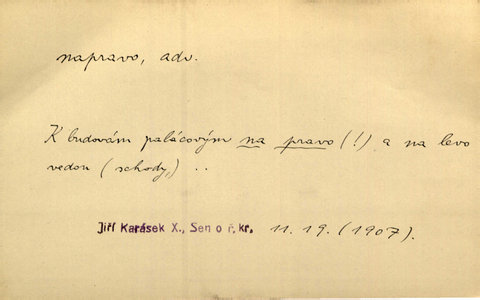 napravo, adv.
K budovám palácovým na pravo (!) a na levo
vedou (schody,) ..
Jiří Karásek X., Sen o ř. kr. 11. 19. (1907).